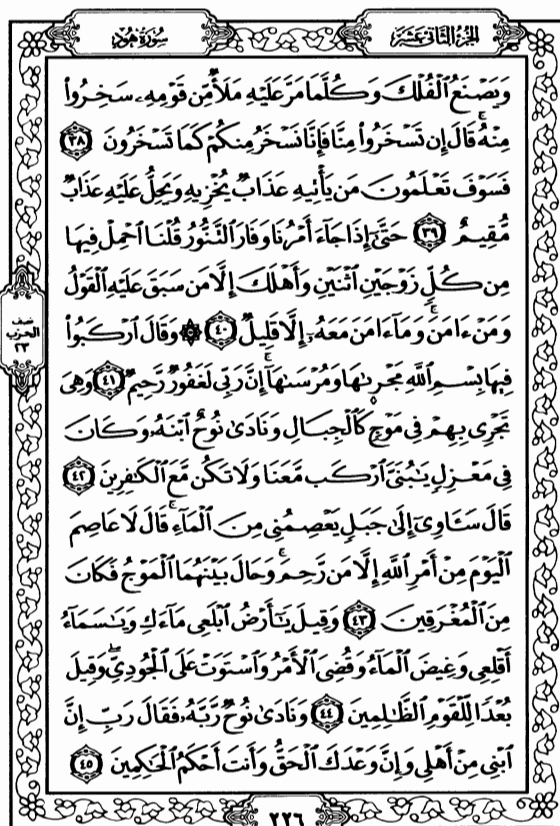 الجزء الثاني عشر
سورة هود
وَيَصْنَعُ ٱلْفُلْكَ وَكُلَّمَا مَرَّ عَلَيْهِ مَلَأٌ مِّن قَوْمِهِۦ سَخِرُوا۟
مِنْهُ ۚ قَالَ إِن تَسْخَرُوا۟ مِنَّا فَإِنَّا نَسْخَرُ مِنكُمْ كَمَا تَسْخَرُونَ ٣٨
فَسَوْفَ تَعْلَمُونَ مَن يَأْتِيهِ عَذَابٌ يُخْزِيهِ وَيَحِلُّ عَلَيْهِ عَذَابٌ
مُّقِيمٌ ٣٩ حَتَّىٰٓ إِذَا جَآءَ أَمْرُنَا وَفَارَ ٱلتَّنُّورُ قُلْنَا ٱحْمِلْ فِيهَا
مِن كُلٍّ زَوْجَيْنِ ٱثْنَيْنِ وَأَهْلَكَ إِلَّا مَن سَبَقَ عَلَيْهِ ٱلْقَوْلُ
وَمَنْ ءَامَنَ ۚ وَمَآ ءَامَنَ مَعَهُۥٓ إِلَّا قَلِيلٌ ٤٠ ۞ وَقَالَ ٱرْكَبُوا۟
فِيهَا بِسْمِ ٱللَّهِ مَجْر۪ىٰهَا وَمُرْسَىٰهَآ ۚ إِنَّ رَبِّى لَغَفُورٌ رَّحِيمٌ ٤١ وَهِىَ
تَجْرِى بِهِمْ فِى مَوْجٍ كَٱلْجِبَالِ وَنَادَىٰ نُوحٌ ٱبْنَهُۥ وَكَانَ
فِى مَعْزِلٍ يَـٰبُنَىَّ ٱرْكَب مَّعَنَا وَلَا تَكُن مَّعَ ٱلْكَـٰفِرِينَ ٤٢
قَالَ سَـَٔاوِىٓ إِلَىٰ جَبَلٍ يَعْصِمُنِى مِنَ ٱلْمَآءِ ۚ قَالَ لَا عَاصِمَ
ٱلْيَوْمَ مِنْ أَمْرِ ٱللَّهِ إِلَّا مَن رَّحِمَ ۚ وَحَالَ بَيْنَهُمَا ٱلْمَوْجُ فَكَانَ
مِنَ ٱلْمُغْرَقِينَ ٤٣ وَقِيلَ يَـٰٓأَرْضُ ٱبْلَعِى مَآءَكِ وَيَـٰسَمَآءُ
أَقْلِعِى وَغِيضَ ٱلْمَآءُ وَقُضِىَ ٱلْأَمْرُ وَٱسْتَوَتْ عَلَى ٱلْجُودِىِّ ۖ وَقِيلَ
بُعْدًا لِّلْقَوْمِ ٱلظَّـٰلِمِينَ ٤٤ وَنَادَىٰ نُوحٌ رَّبَّهُۥ فَقَالَ رَبِّ إِنَّ
ٱبْنِى مِنْ أَهْلِى وَإِنَّ وَعْدَكَ ٱلْحَقُّ وَأَنتَ أَحْكَمُ ٱلْحَـٰكِمِينَ ٤٥
نصف
الحزب
٢٣
٢٢٦